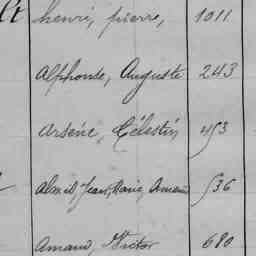 lt henri, pierre, 1011
Alphonse, Auguste 243
Arsène, Célestin 453
Jean, Marie, 536
Amand, Victor 680